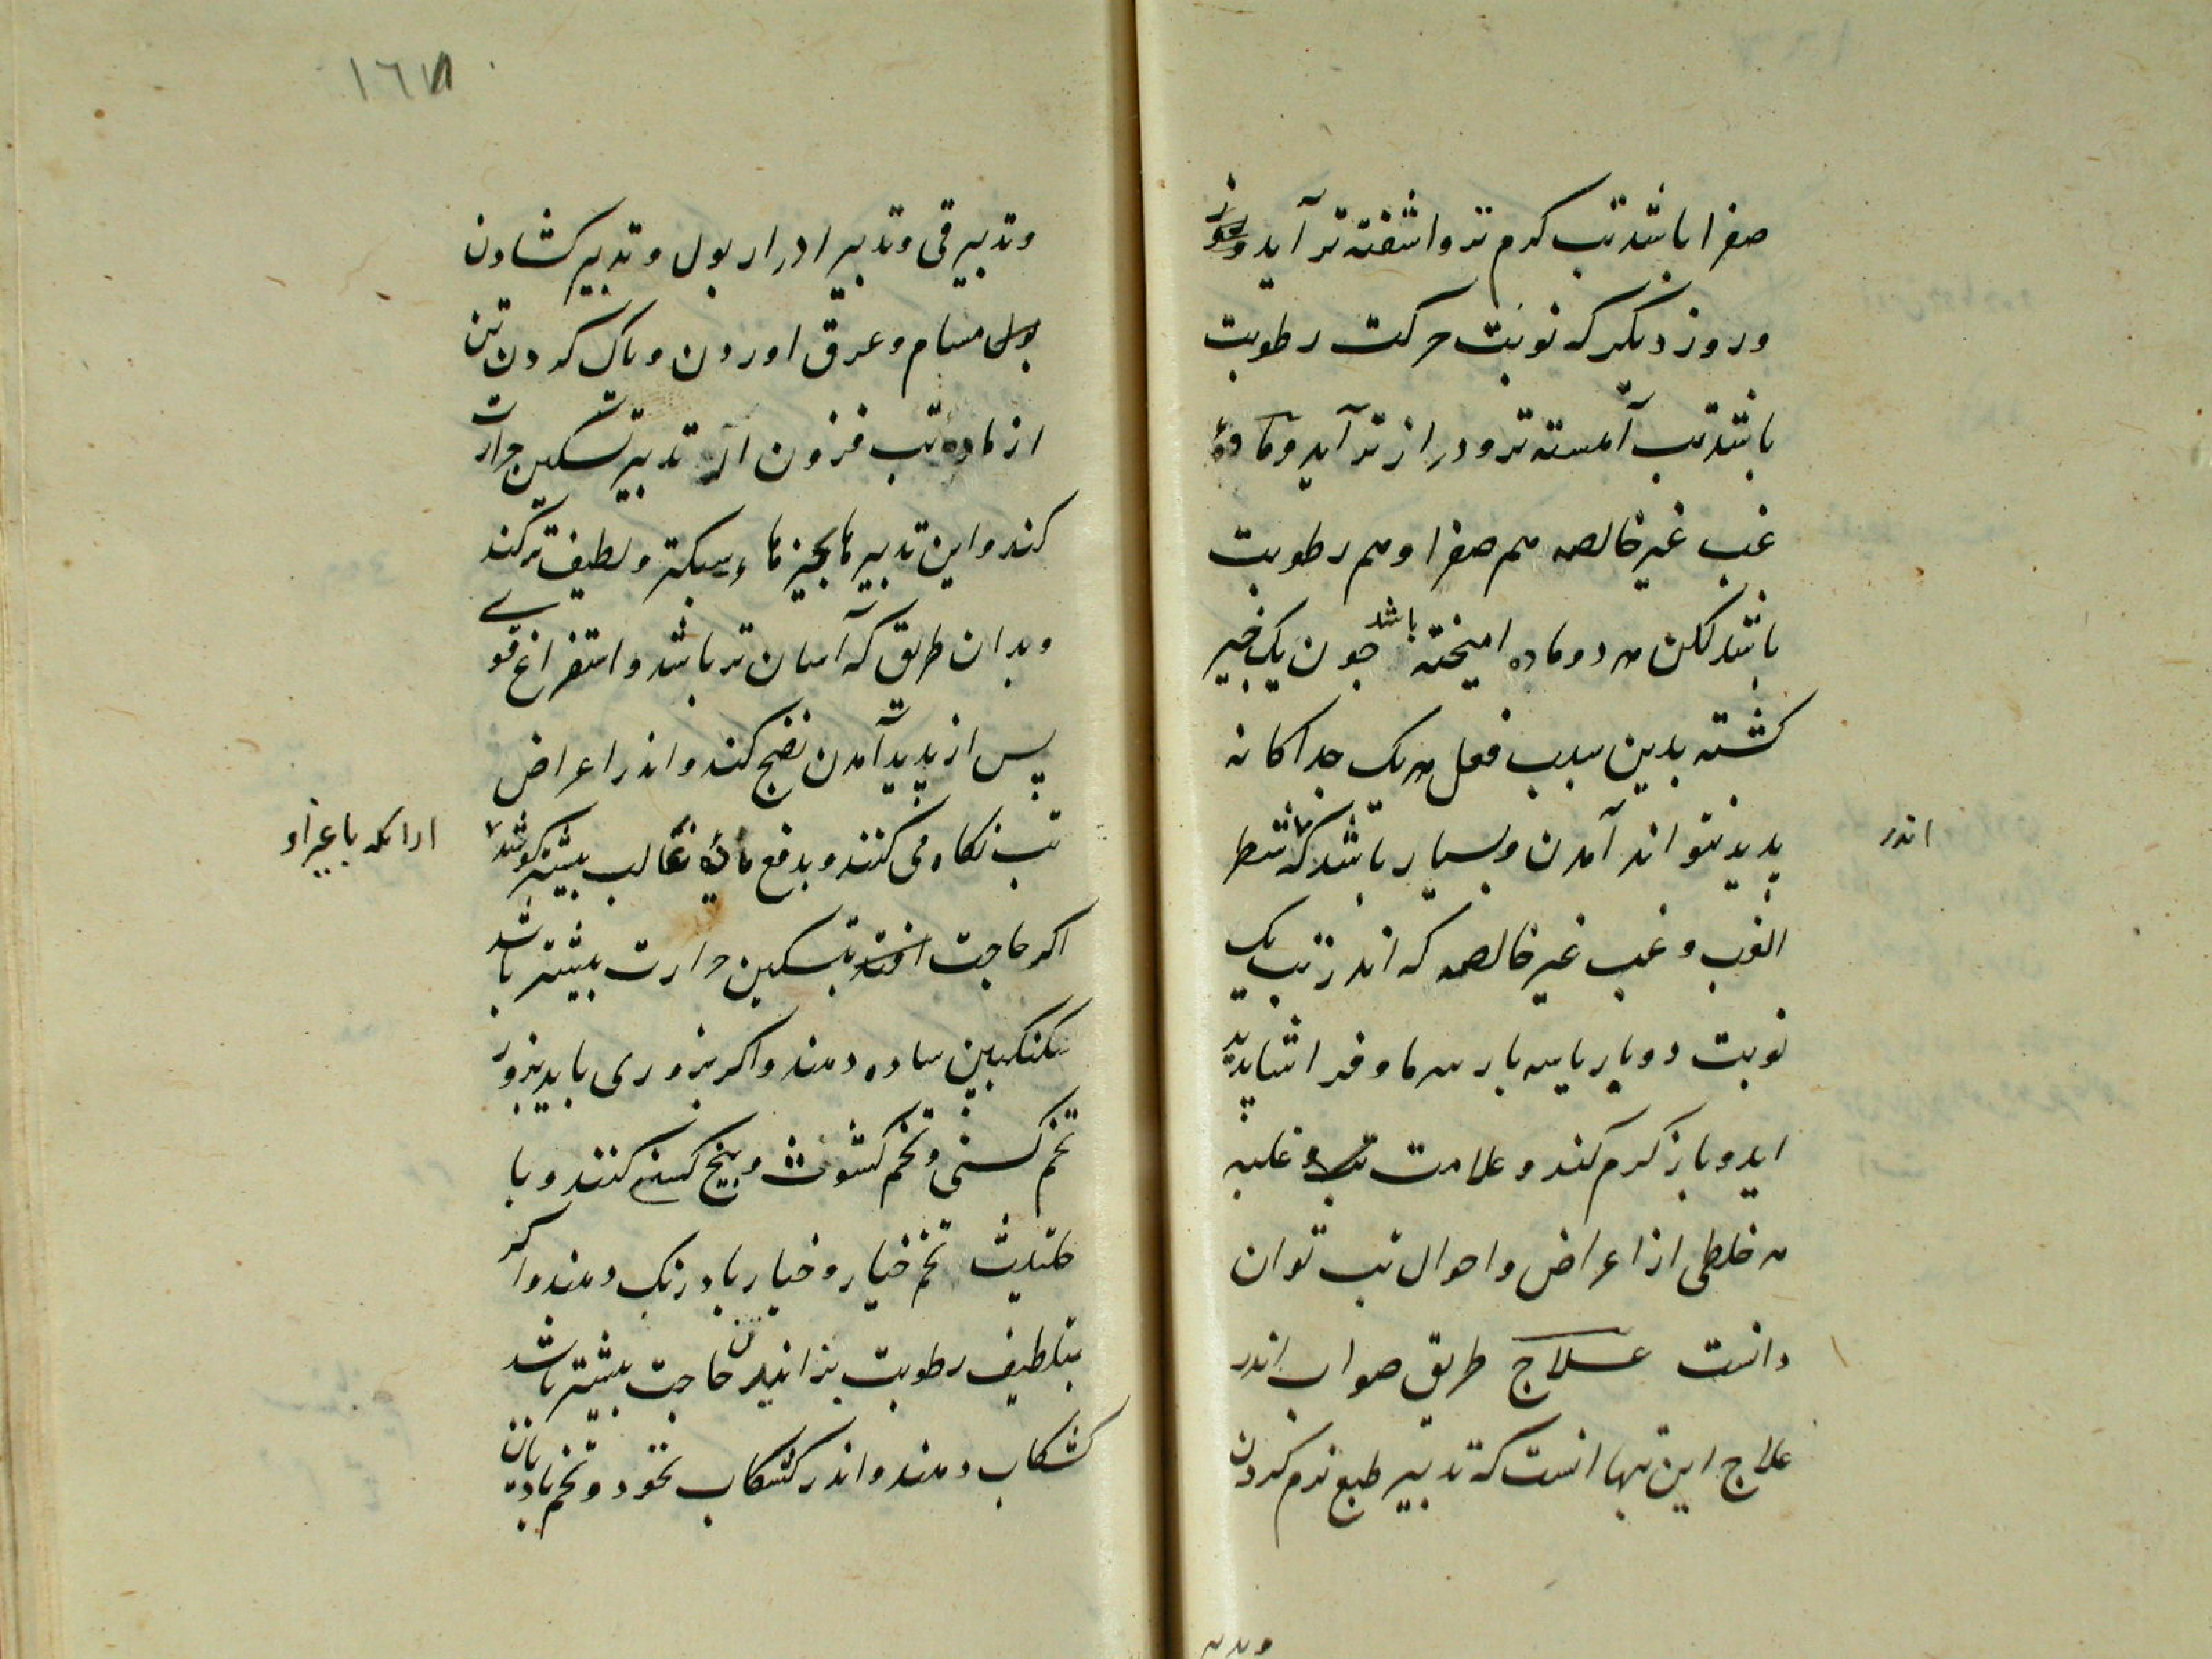 صفرا باشد تب کرم تر واشفته تر آید و
وروز دیکر که نوبت حرکت رطوبت
باشد تب آهسته تر ودراز تر آید ومادهٔ
غب غیر خالصه هم صفرا وهم رطوبت
باشد لکن هر دو ماده امیخته باشد جون یک خمیر
کشته بدین سبب فعل هر یک جداکانه
پدید نتواند آمدن وبسیار باشد که شطر
اندر
الغب وغب غیر خالصه که اندر تب یک
نوبت دوبار یاسه بار سرما وفراشا پدید
اید وباز کرم کند وعلامت تب وغلبه
هر خلطی از اعراض واحوال تب توان
دانست علاج طریق صواب اندر
علاج این تبها انست که تدبیر طبع نرم کردن
١٦٧
وتدبیر قی وتدبیر ادرار بول وتدبیر کشادن
بول مسام وعرق اوردن وپاک کردن تن
از ماده تب فزون از تدبیر تسکین حرارت
کند واین تدبیرها بجیزهاء سبکتر ولطیف تر کند
وبدان طریق که آسان تر باشد واستفراغ قوی
پس از پدید آمدن نضج کند واندر اعراض
تب نکاه می کنند وبدفع مادهٔ غالب بیشتر کوشند
اکر حاجت افتد بتسکین حرارت بیشتر باشد
سکنکبین ساده دهند واکر بزوری باید بزور
تخم کسنی وتخم کشوث وبیخ کسنی کنند وبا
حلتیت تخم خیار وخیار بادرنک دهند واکر
بتلطیف رطوبت بزانیدن حاجت بیشتر باشد
کشکاب دهند واندر کشکاب نخود وتخم بادیان